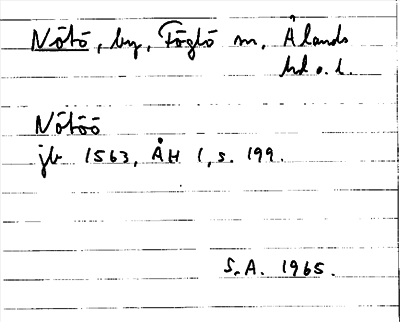 Nötö, by, Föglö sn, Ålands
hd o. l.
Nötöö
jb 1563, ÅH 1, s. 199.
S.A. 1965.